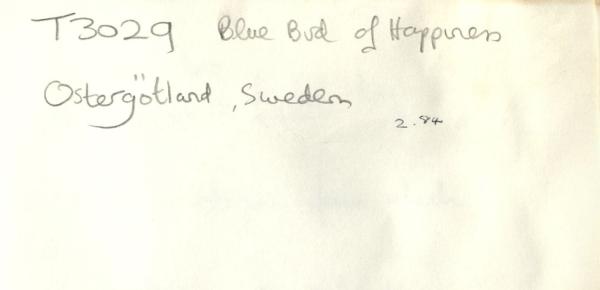 T3029 Blue Bird of Happiness
Ostergötland, Sweden
2.84